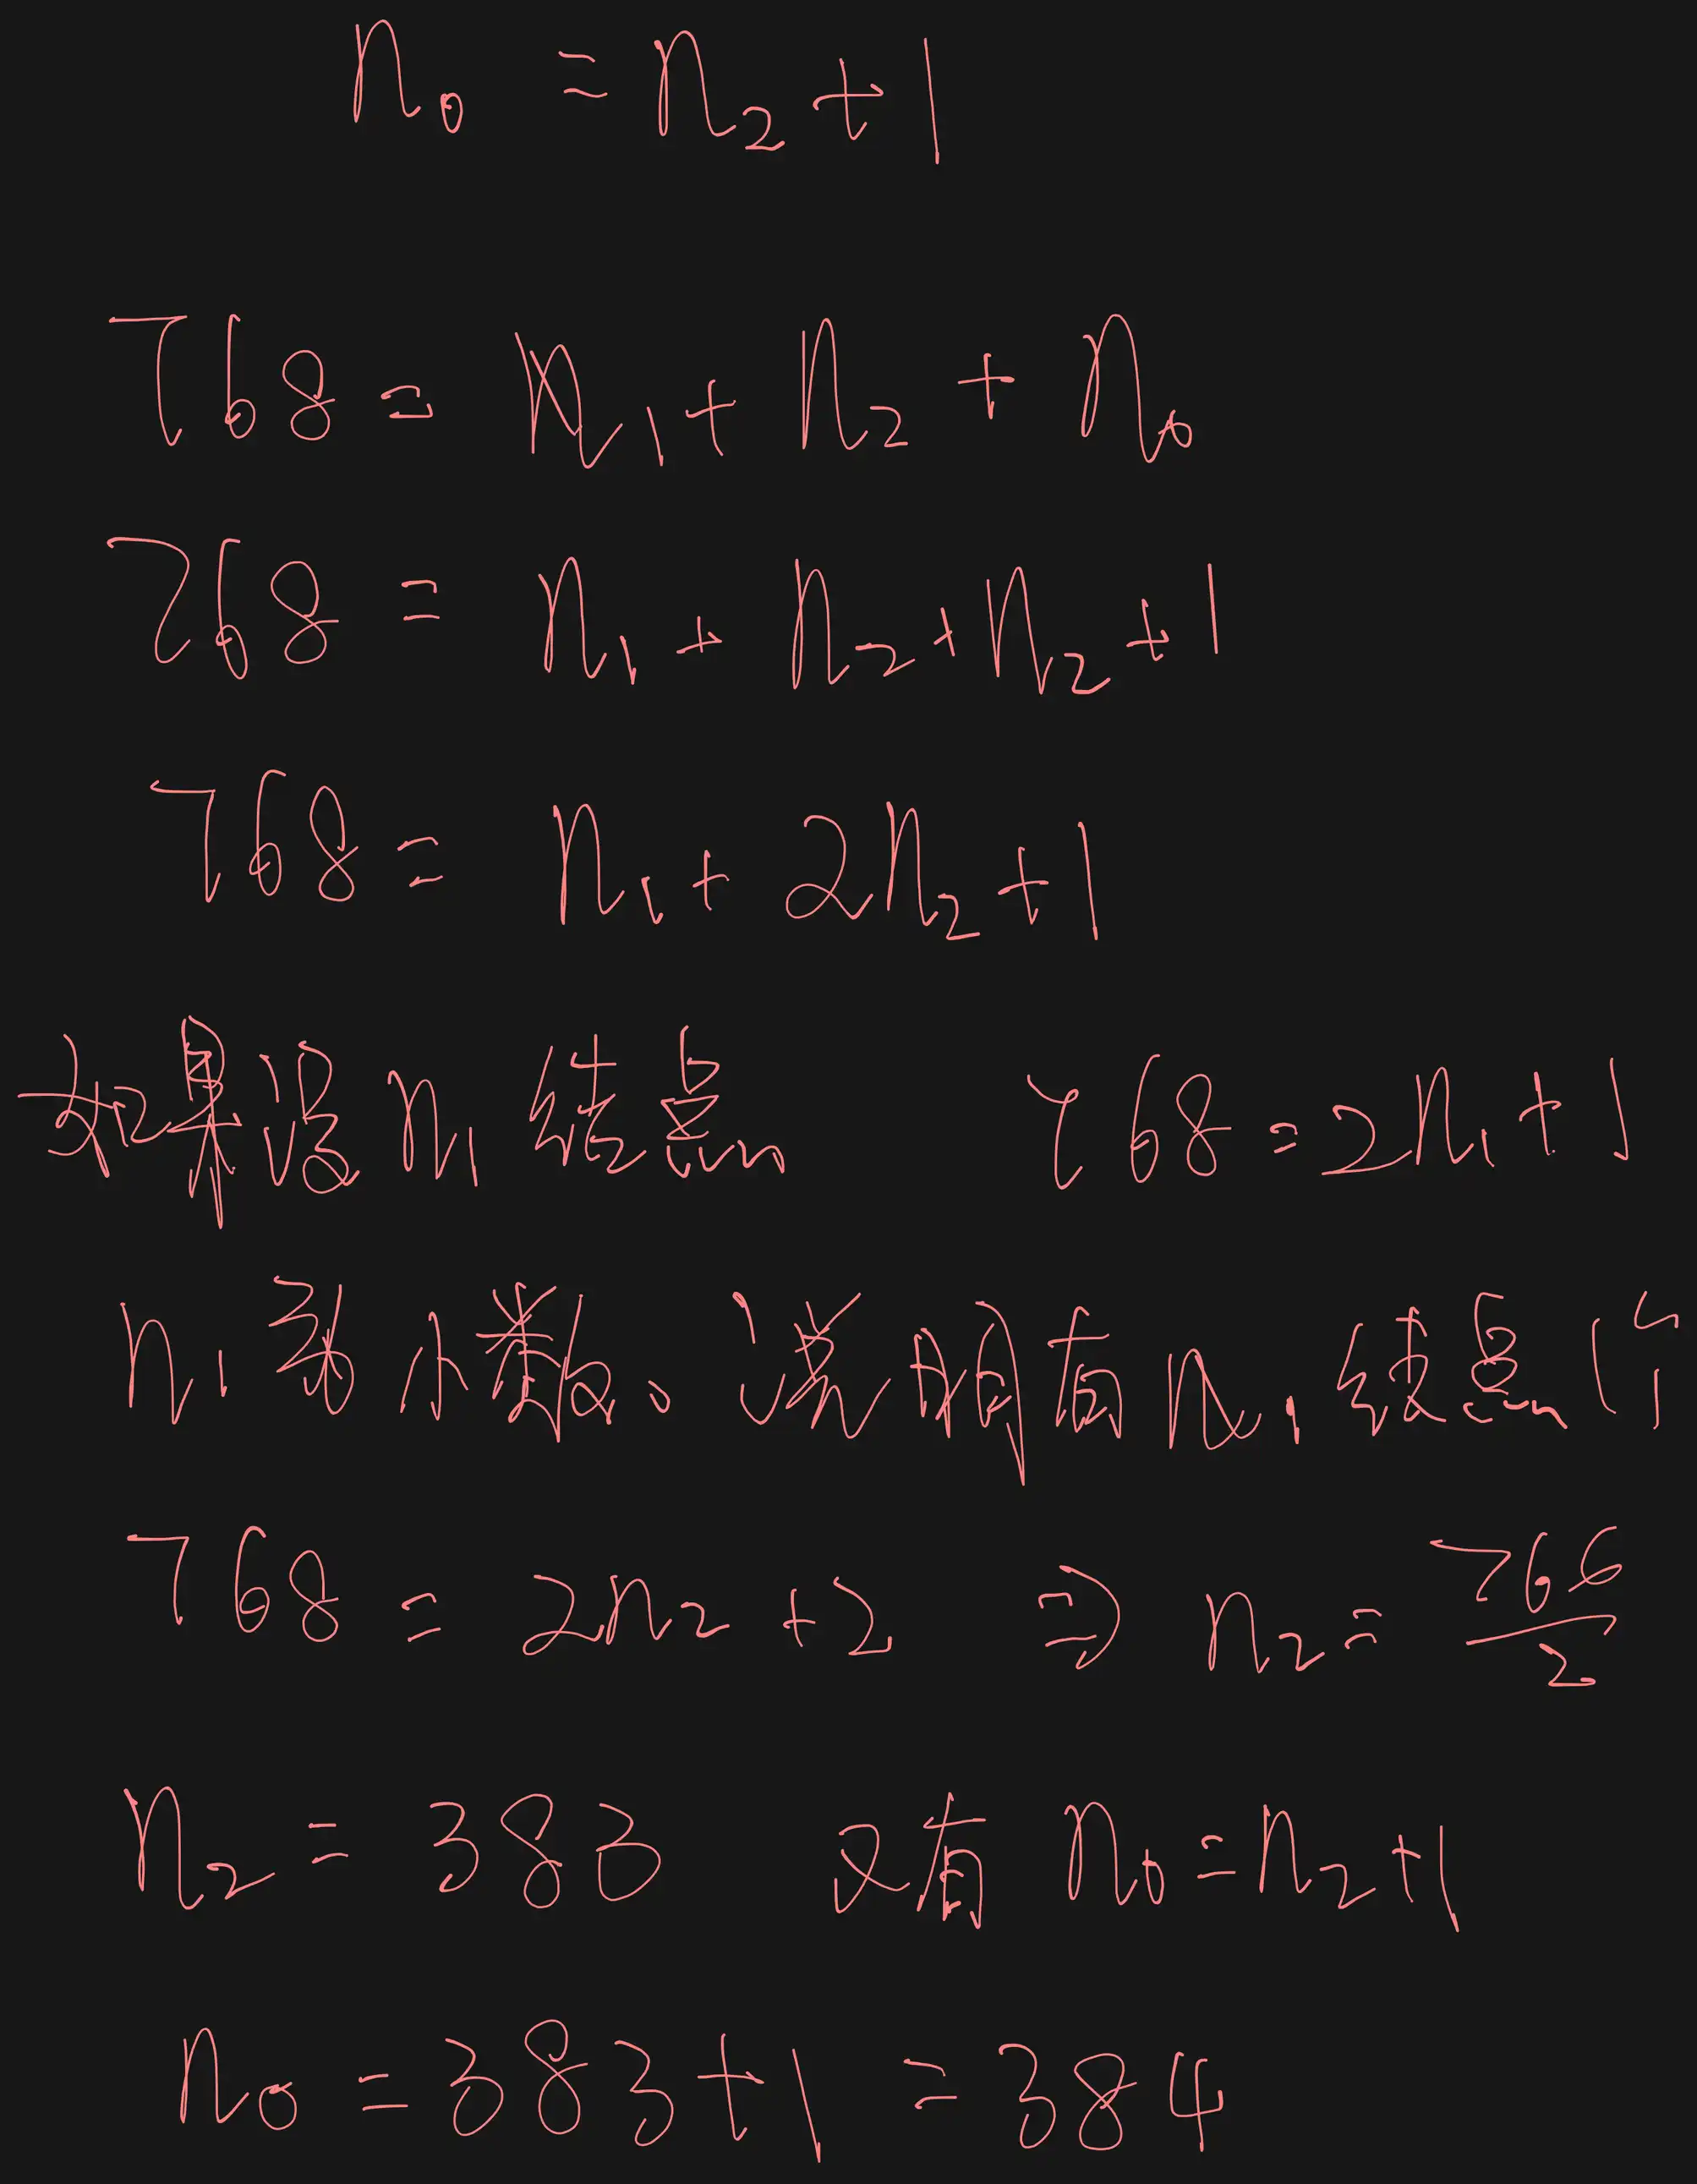 n₀ = n₂ + 1
768 = n₁ + n₂ + n₀
768 = n₁ + n₂ + n₂ + 1
768 = n₁ + 2n₂ + 1
如果没n₁结点 768 = 2n₁ + 1
n₁为小数、说明有n₁结点1个
768 = 2n₂ + 2 ⇒ n₂ = 766/2
n₂ = 383 又有 n₀ = n₂ + 1
n₀ = 383 + 1 = 384